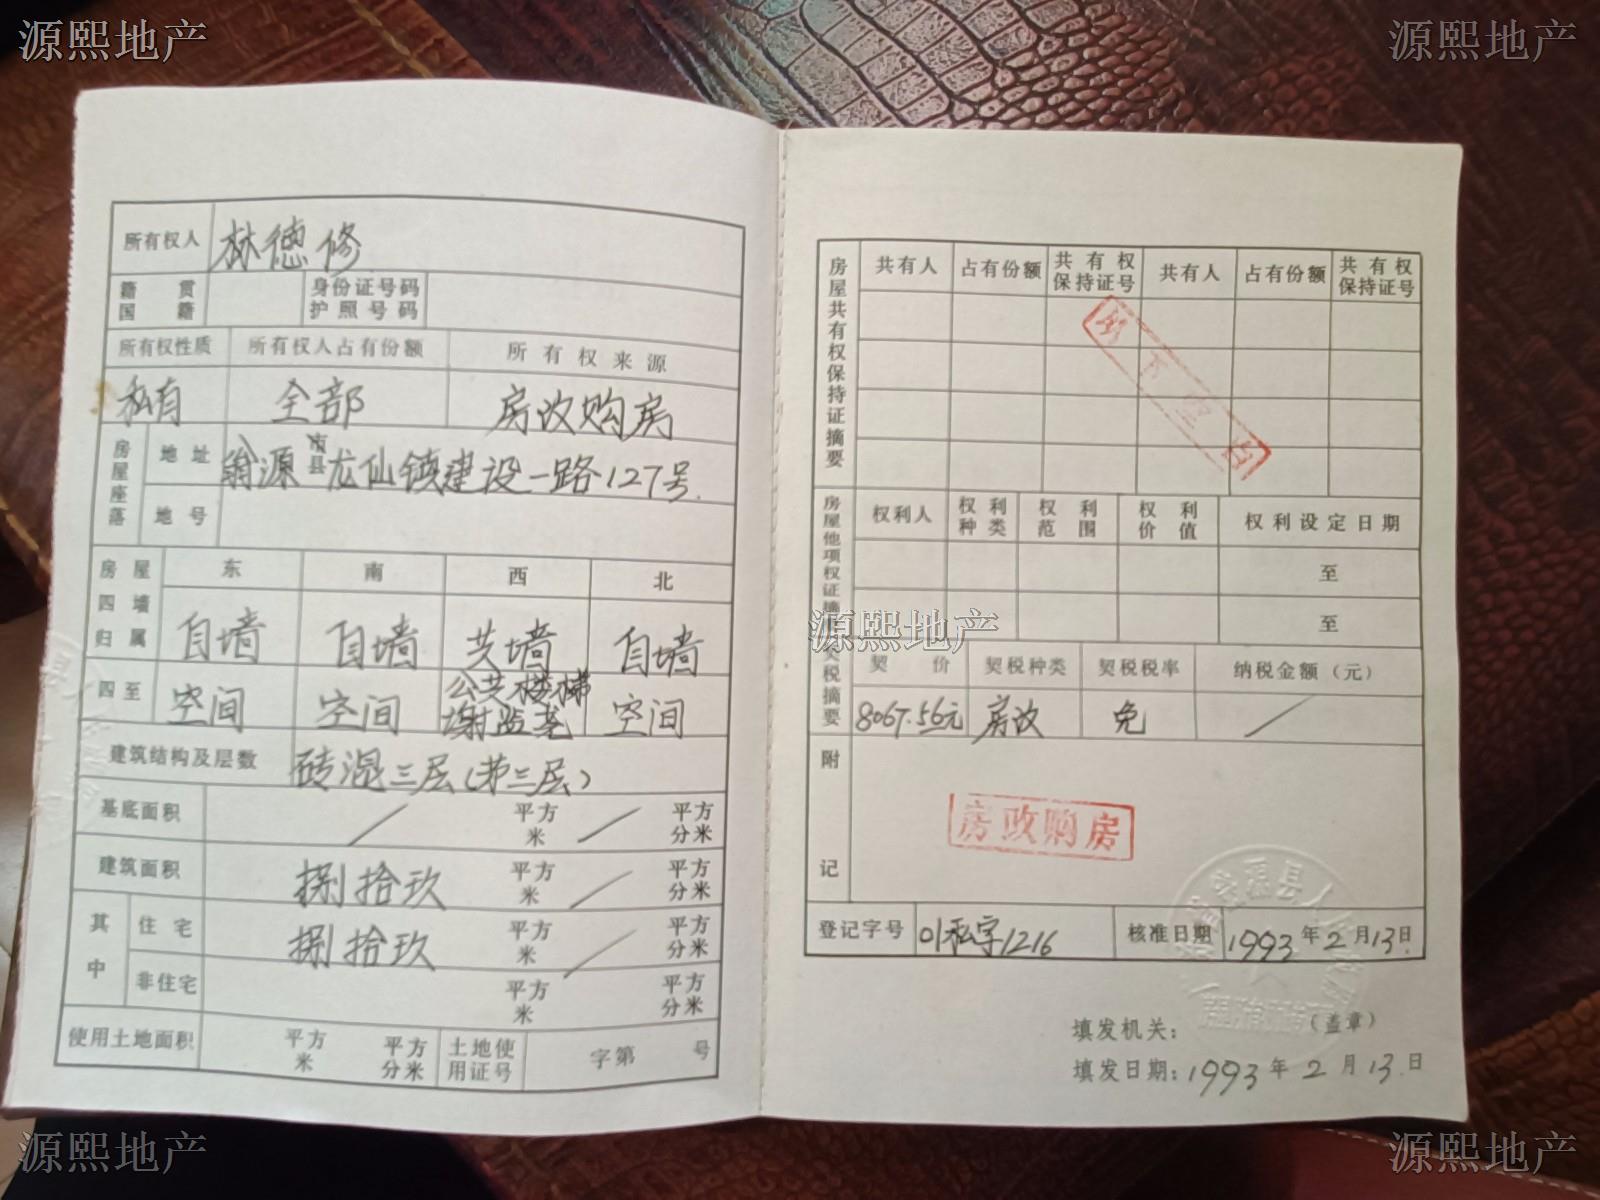 源熙地产
源熙地产
所有权人 林德修
籍贯 国籍 身份证号码 护照号码
所有权性质 所有权人占有份额 所有权来源
私有 全部 房改购房
房屋座落 地址 翁源 市县 龙仙镇建设一路127号
地号
房屋四墙归属 东 南 西 北
自墙 自墙 共墙 自墙
四至 空间 空间 公共楼梯 空间
建筑结构及层数 砖混三层(第三层)
基底面积 / 平方米 / 平方分米
建筑面积 捌拾玖 平方米 / 平方分米
其中 住宅 捌拾玖 平方米 / 平方分米
非住宅 平方米 平方分米
使用土地面积 平方米 平方分米 土地使用证号 字第 号
房屋共有权保持证摘要 共有人 占有份额 共有权保持证号 共有人 占有份额 共有权保持证号
以下空白
房屋他项权证摘要 权利人 权利种类 权利范围 权利价值 权利设定日期
至
至
源熙地产
契税摘要 契价 契税种类 契税税率 纳税金额(元)
8067.56元 房改 免 /
附记
房改购房
登记字号 01私字1216 核准日期 1993年2月13日
填发机关: (盖章)
填发日期: 1993年2月13日
源熙地产
源熙地产